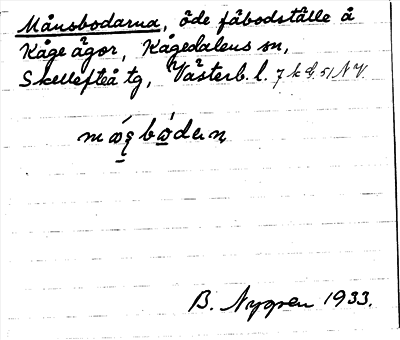 Månsbodarna, öde fäbodställe å
Kåge ägor, Kågedalens sn,
Skellefteå tg, Västerb. l. 7 k d, 51 NV.
B. Nygren 1933.